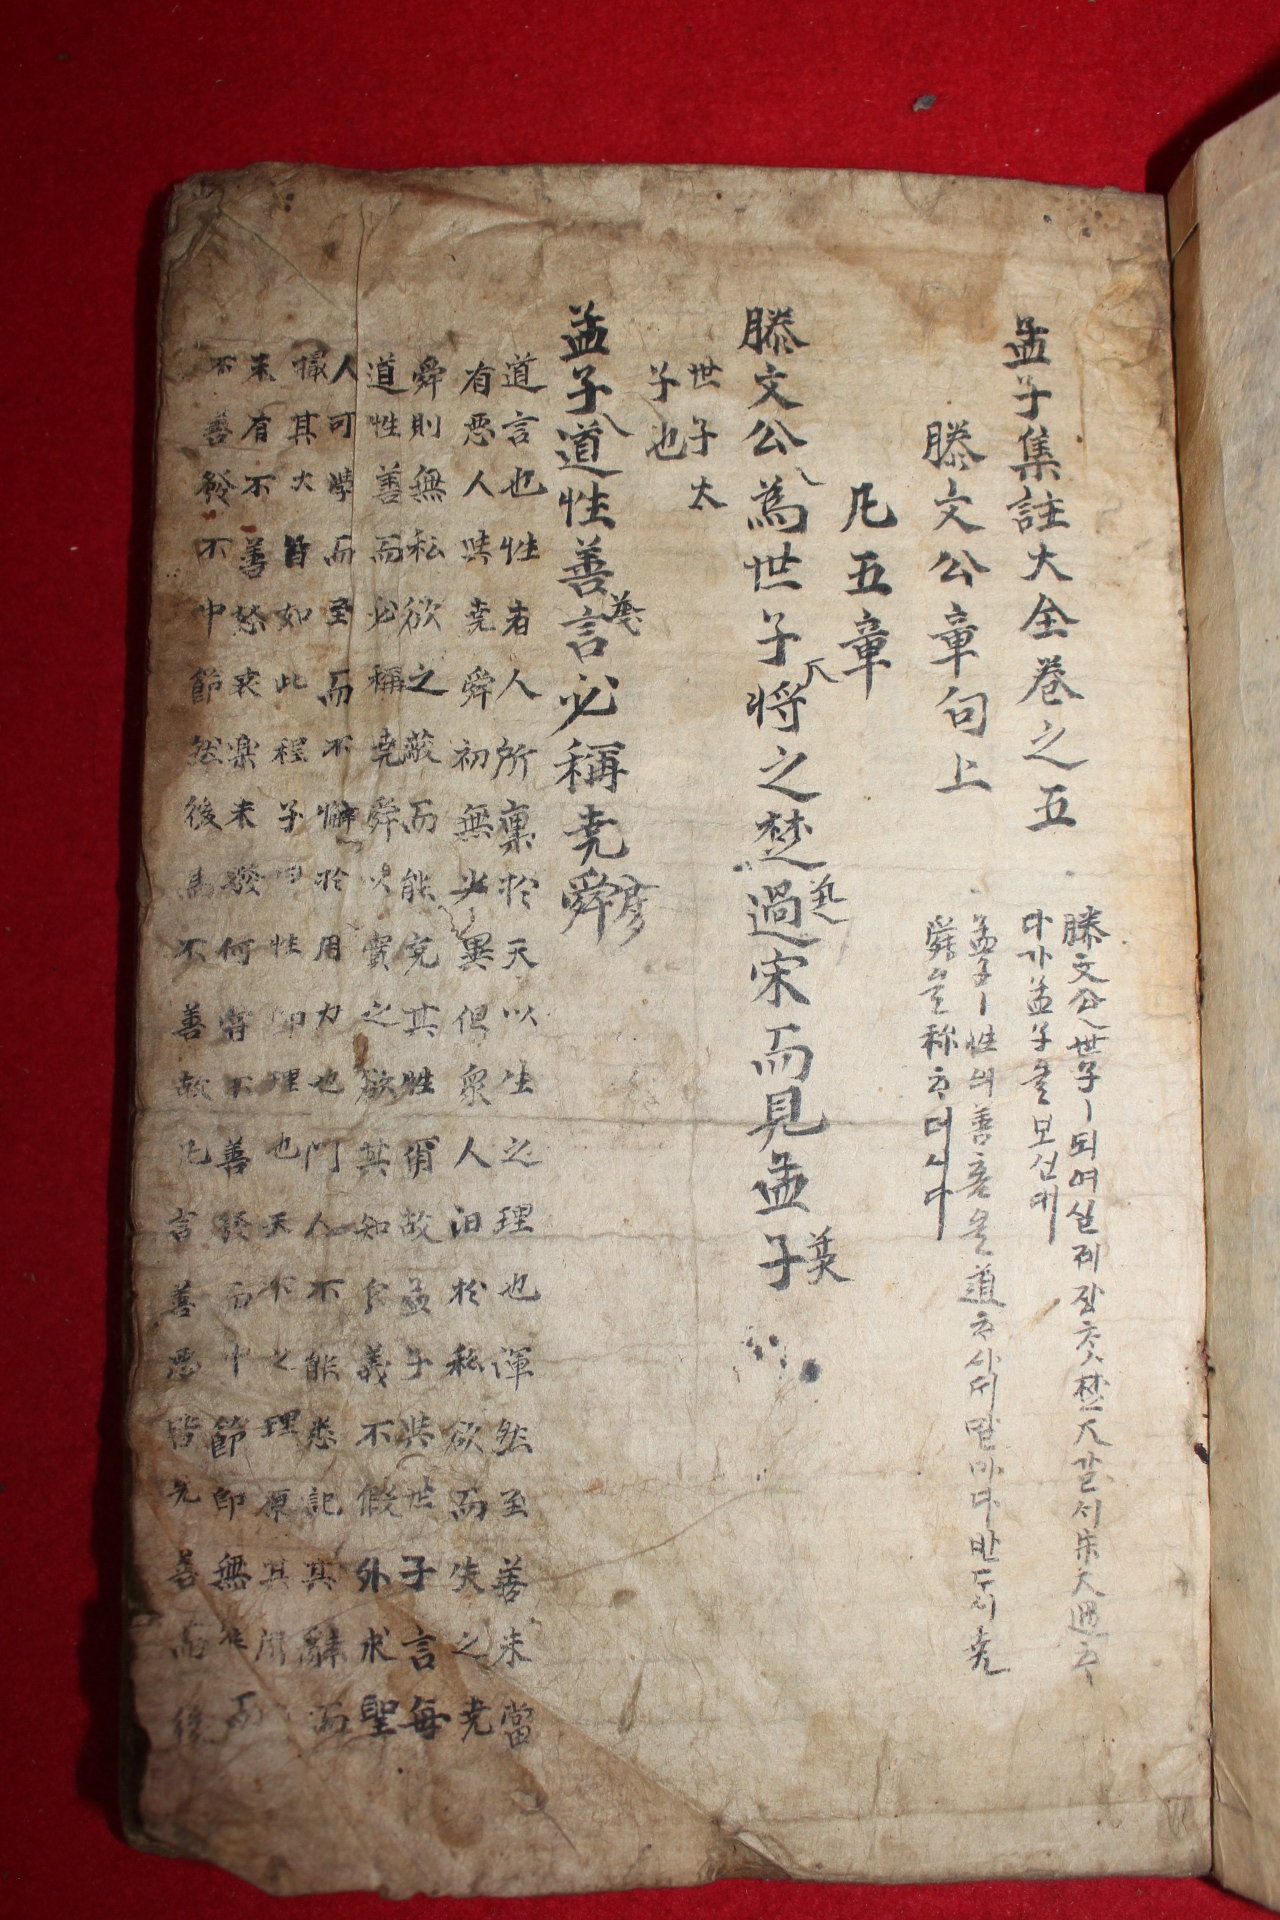 孟子集註大全卷之五
滕文公章句上
滕文公 世子ㅣ되여실제장ᄎᆺ楚
다가孟子를보신대
孟子ㅣ性의善홈을道ᄒᆞ샤ᄃᆡ말마다반ᄃᆞ시堯
舜을称ᄒᆞ더시다
凡五章
滕文公為世子将之楚過宋而見孟子
世子太
子也
孟子道性善言必稱堯舜
道言也性者人所稟於天以生之理也渾然至善未嘗
有惡人與堯舜初無少異但衆人汩於私欲而失之堯
舜則無私欲之蔽而能充其性爾故孟子與世子言每
道性善而必稱堯舜以實之欲其知仁義不假外求聖
人可學而至而不懈於用力也門人不能悉記其辭而
撮其大旨如此程子曰性即理也天下之理原其所
未有不善喜怒哀樂未發何嘗不善發而中節即無往而
不善發不中節然後為不善故凡言善惡皆先善而後